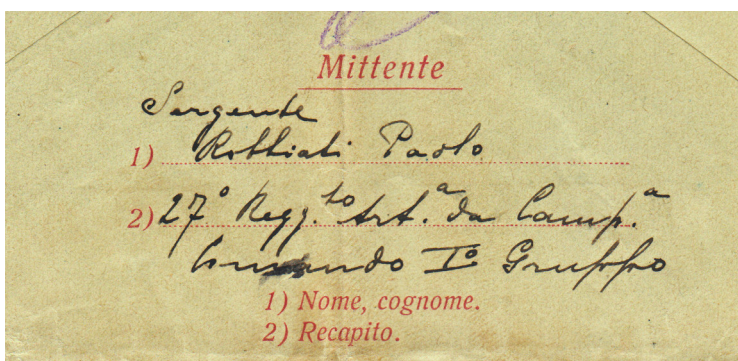 Mittente
Sergente
1) Robbiati Paolo
2) 27° Regg.to Art.a da Camp.a
Comando I° Gruppo
1) Nome, cognome.
2) Recapito.